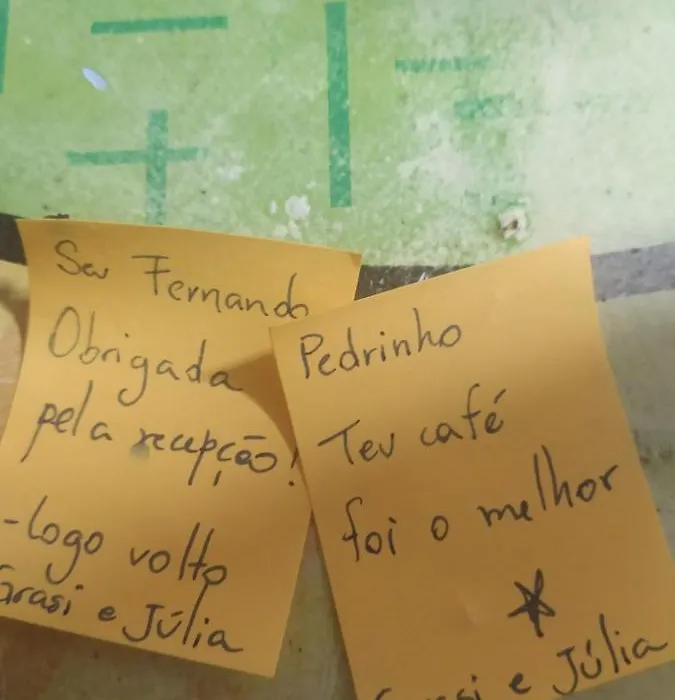 Seu Fernando
Obrigada
pela recepção!
-logo volto
Grasi e Júlia
Pedrinho
Teu café
foi o melhor
Grasi e Júlia